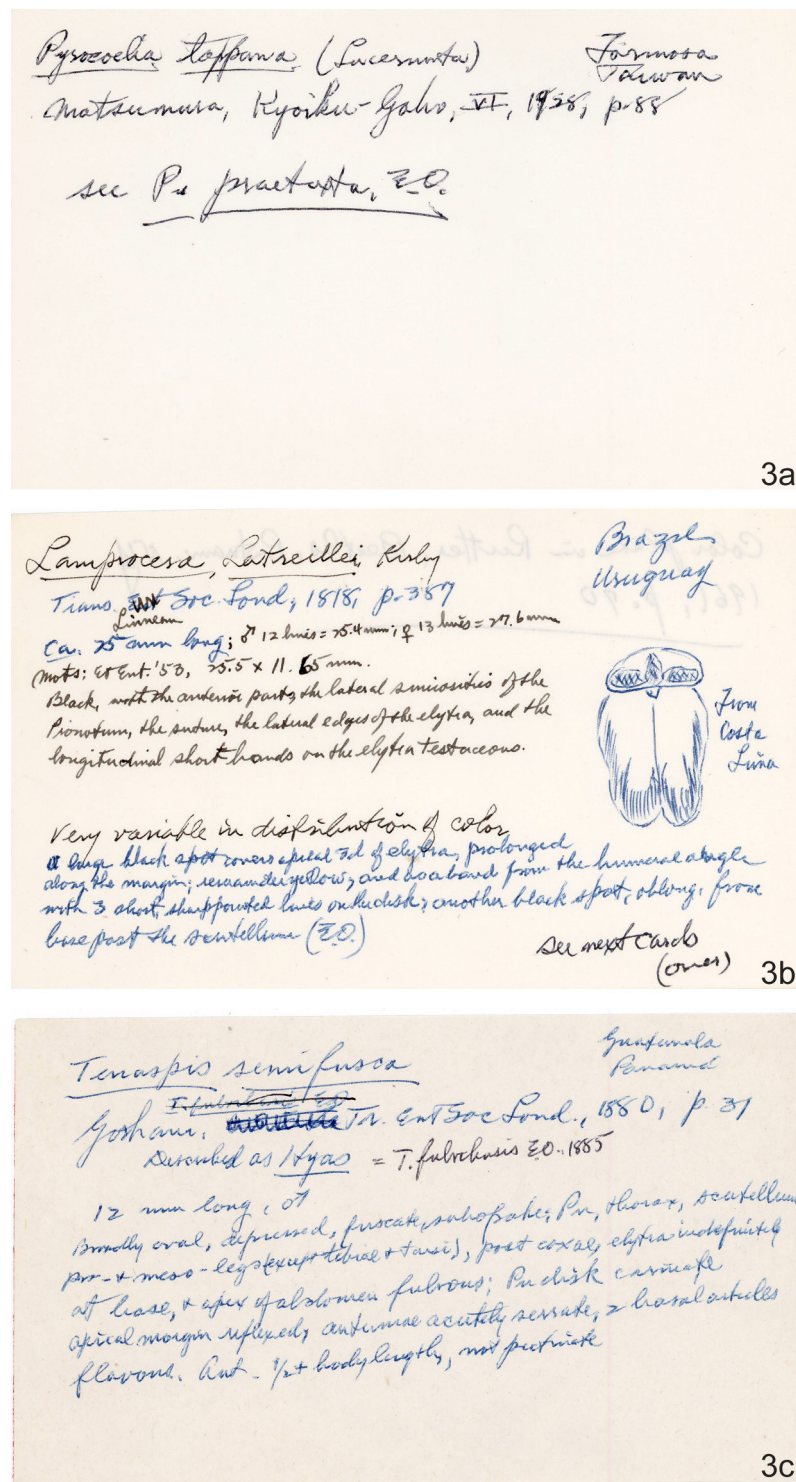 Pyrocoelia toppana (Lucernuta)
Formosa
Taiwan
Matsumura, Kyoiku-Gaho, VI, 1928, p. 88
see P. praetexta, E.O.
3a
Lamprocera, Latreillei, Kirby
Brazil
Uruguay
Trans. Ent Soc. Lond, 1818, p. 387
Linnean
Ca. 25 mm long; ♂ 12 lines = 25.4 mm; ♀ 13 lines = 27.6 mm
Mots: Et Ent. '53, 25.5 x 11.65 mm.
Black, with the anterior parts, the lateral sinuosities of the
Pronotum, the suture, the lateral edges of the elytra, and the
longitudinal short bands on the elytra testaceous.
From
Costa
Lima
Very variable in distribution of color
a large black spot covers apical 3d of elytra, prolonged
along the margin; remainder yellow, and as a band from the humeral angle
with 3 short, sharp pointed lines on the disk; another black spot, oblong, from
base past the scutellum (E.O.)
see next cards
(over)
3b
Tenaspis semifusca
Guatemala
Panamá
Gorham, Tr. Ent Soc Lond., 1880, p. 31
Described as Hyas = T. fulvibasis E.O. 1885
12 mm long, ♂
Broadly oval, depressed, fuscate, subopake, Pn, thorax, scutellum
pro- + meso-legs (except tibiae + tarsi), post coxae, elytra indefinitely
at base, + apex of abdomen fulvous; Pn disk carinate
apical margin reflexed, antennae acutely serrate, 2 basal articles
flavous. Ant. ½+ body length, not pectinate
3c